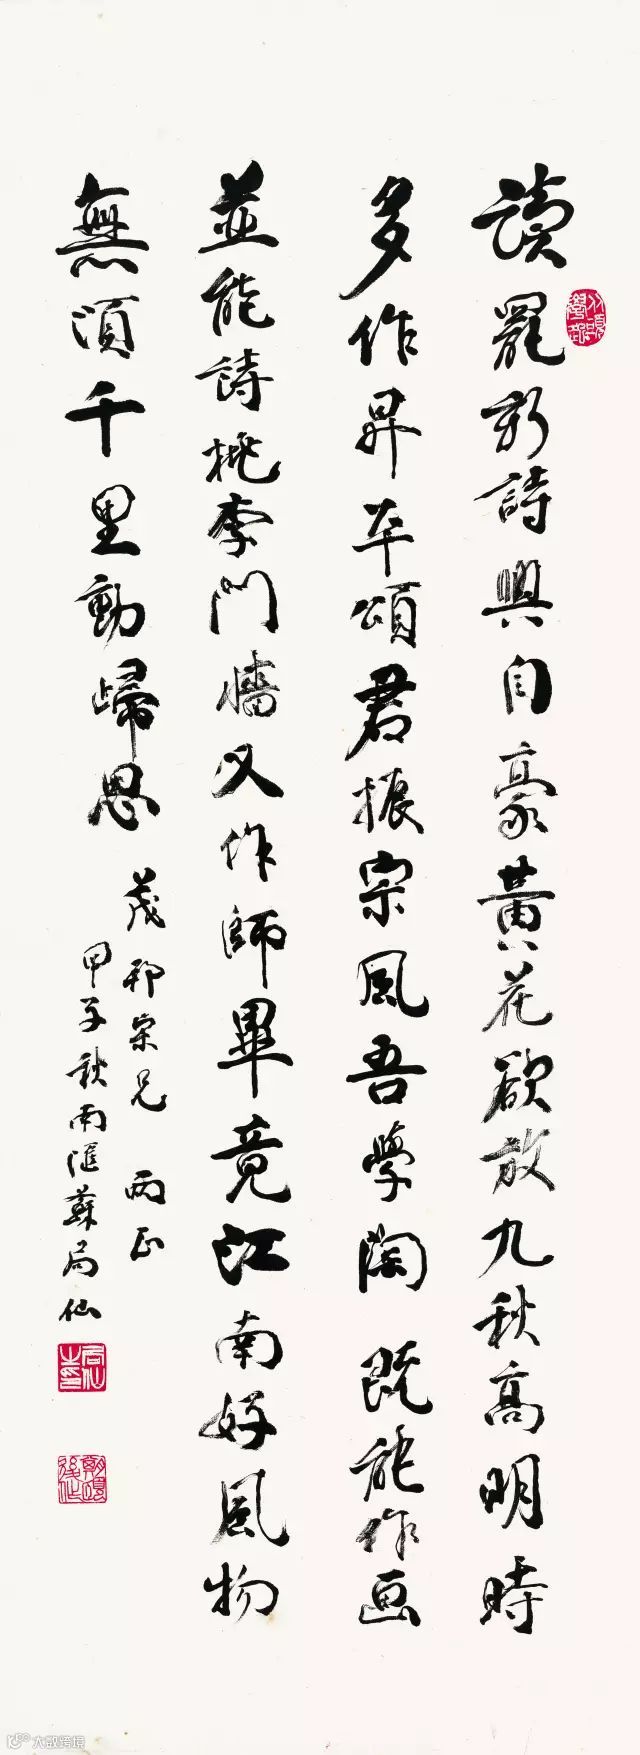 讀罷新詩興自豪黃花欲放九秋高明時
多作昇平頌君振宗風吾學陶既能作画
並能詩桃李門墻又作師畢竟江南好風物
無須千里動歸思
茂邦宗兄 两正
甲子秋南滙蘇局仙
大数跨境